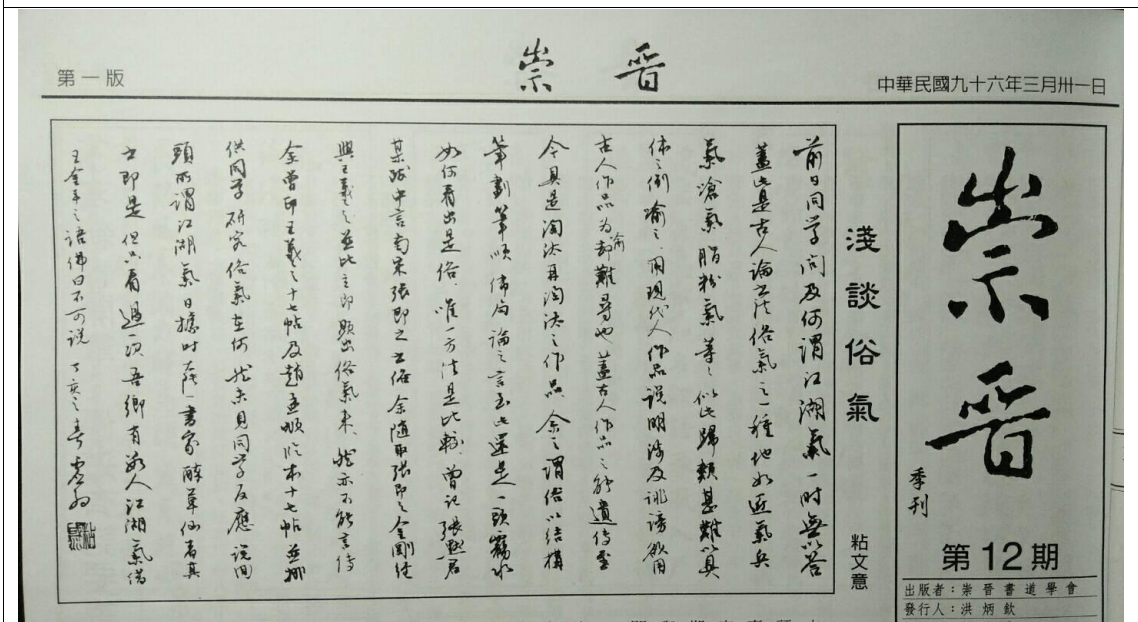 第一版
崇晉
中華民國九十六年三月卅一日
崇晉
季刊
第12期
出版者：崇晉書道學會
發行人：洪炳欽
淺談俗氣
粘文意
前日同學問及何謂江湖氣一時無以答
蓋此是古人論書法俗氣之一種他如匠氣兵
氣滄氣脂粉氣等等似此歸類甚難以具
体之例喻之用現代人作品說明涉及誹謗欲用
古人作品為喻却難尋也蓋古人作品之能遺傳至
今具是淘汰再淘汰之作品余之謂俗以結構
筆劃筆順佈局論之言至此還是一頭霧水
如何看出是俗唯一方法是比較曾記張默君
某跋中言南宋張即之書俗余隨取張即之金剛經
與王羲之並比之即顯出俗氣來然亦不能言傳
余曾印王羲之十七帖及趙孟頫臨本十七帖並挪
供同學研究俗氣在何然未見同學反應說回
頭所謂江湖氣日據時萍一書家醉草仙者其
書即是但只看過一次吾鄉有數人江湖氣借
王金平之語佛曰不可說丁亥之春